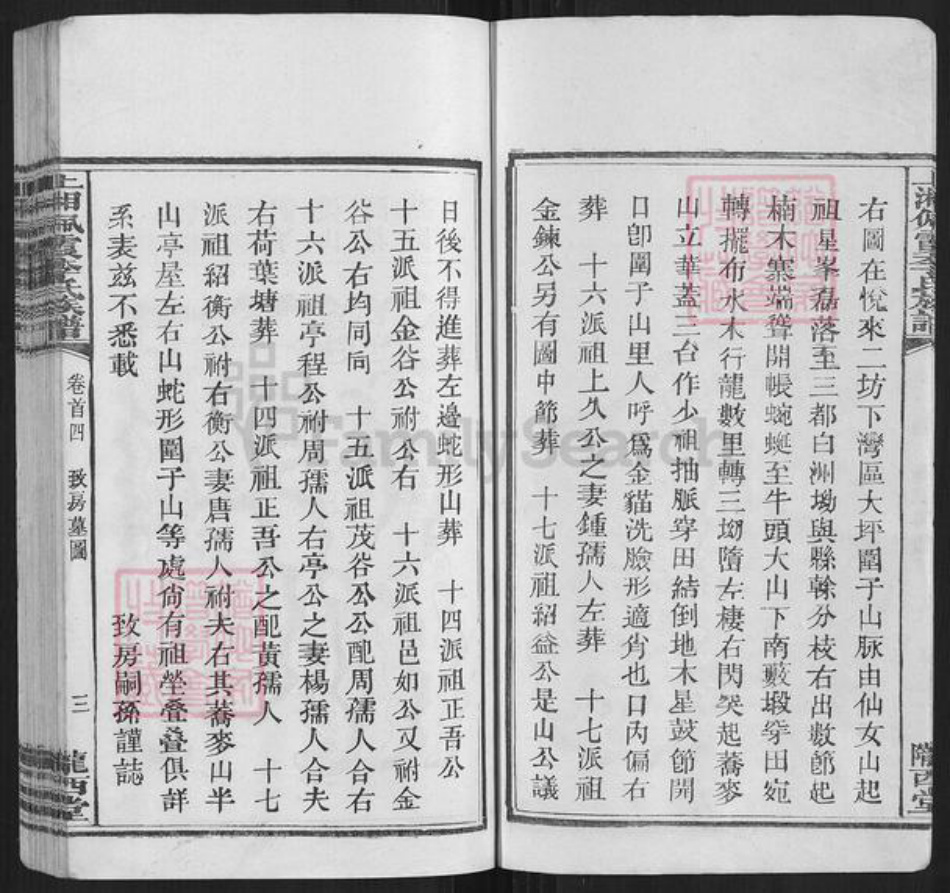 右圖在悅來二坊下灣區大坪圍子山脈由仙女山起
祖星峯磊落至三都白洲坳與縣榦分枝右出數節起
楠木寨端聳開帳蜿蜒至牛頭大山下南藪塅穿田宛
轉擺布水木行龍數里轉三坳隋左棲右閃突起蕎麥
山立華蓋三台作少祖抽脈穿田結倒地木星鼓節開
口卽圍子山里人呼爲金貓洗臉形適肖也口內偏右
葬 十六派祖上久公之妻鍾孺人左葬 十七派祖
金鍊公另有圖中節葬 十七派祖紹益公是山公議
日後不得進葬左邊蛇形山葬 十四派祖正吾公
十五派祖金谷公祔公右 十六派祖邑如公又祔金
谷公右均同向 十五派祖茂谷公公配周孺人合右
十六派祖亭程公祔周孺人右亭公之妻楊孺人合夫
右荷葉塘葬 十四派祖正吾公之配黃孺人 十七
派祖紹衡公祔右衡公妻唐孺人祔夫右其蕎麥山半
山亭屋左右山蛇形圍子山等處尙有祖塋叠叠俱詳
系表茲不悉載
致房嗣孫謹誌
上湘佩霞李氏族譜
卷首四 致房墓圖
三
隴西堂